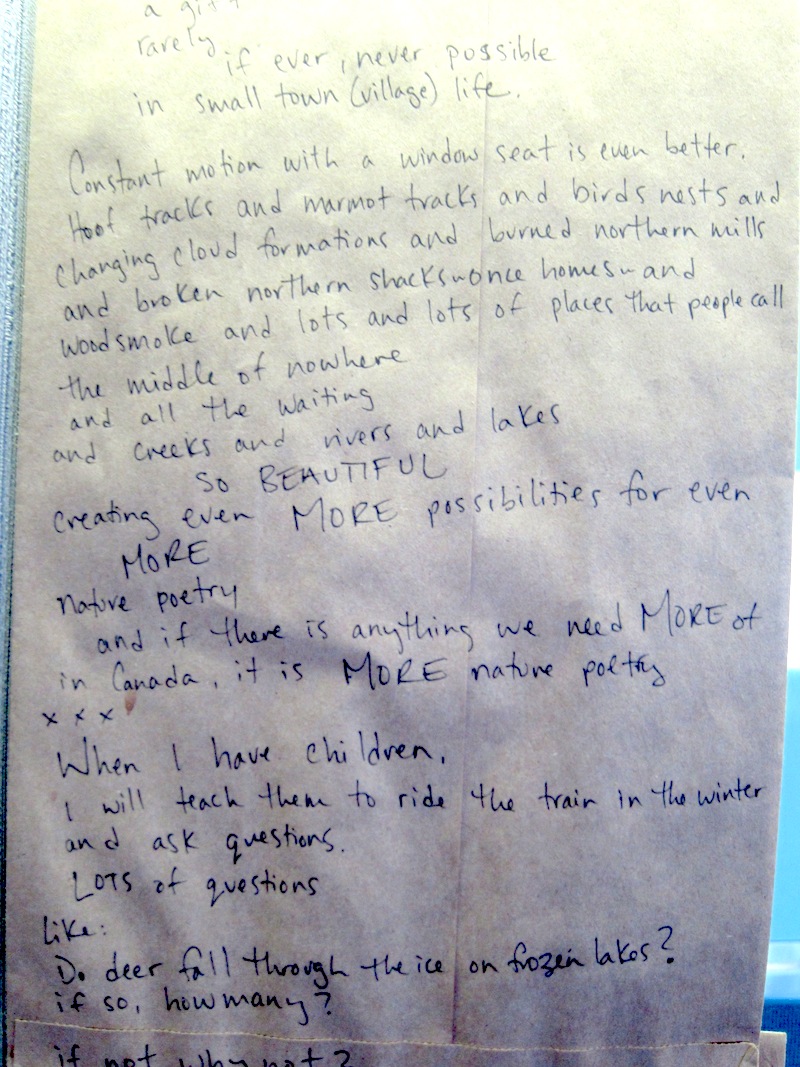 a gift
rarely
if ever, never possible
in small town (village) life.
Constant motion with a window seat is even better.
Hoof tracks and marmot tracks and birds nests and
changing cloud formations and burned northern mills
and broken northern shacks~once homes~and
woodsmoke and lots and lots of places that people call
the middle of nowhere
and all the waiting
and creeks and rivers and lakes
SO BEAUTIFUL
creating even MORE possibilities for even
MORE
nature poetry
and if there is anything we need MORE of
in Canada, it is MORE nature poetry
x x x
When I have children,
I will teach them to ride the train in the winter
and ask questions.
LOTS of questions
like:
Do deer fall through the ice on frozen lakes?
if so, how many?
if not why not?